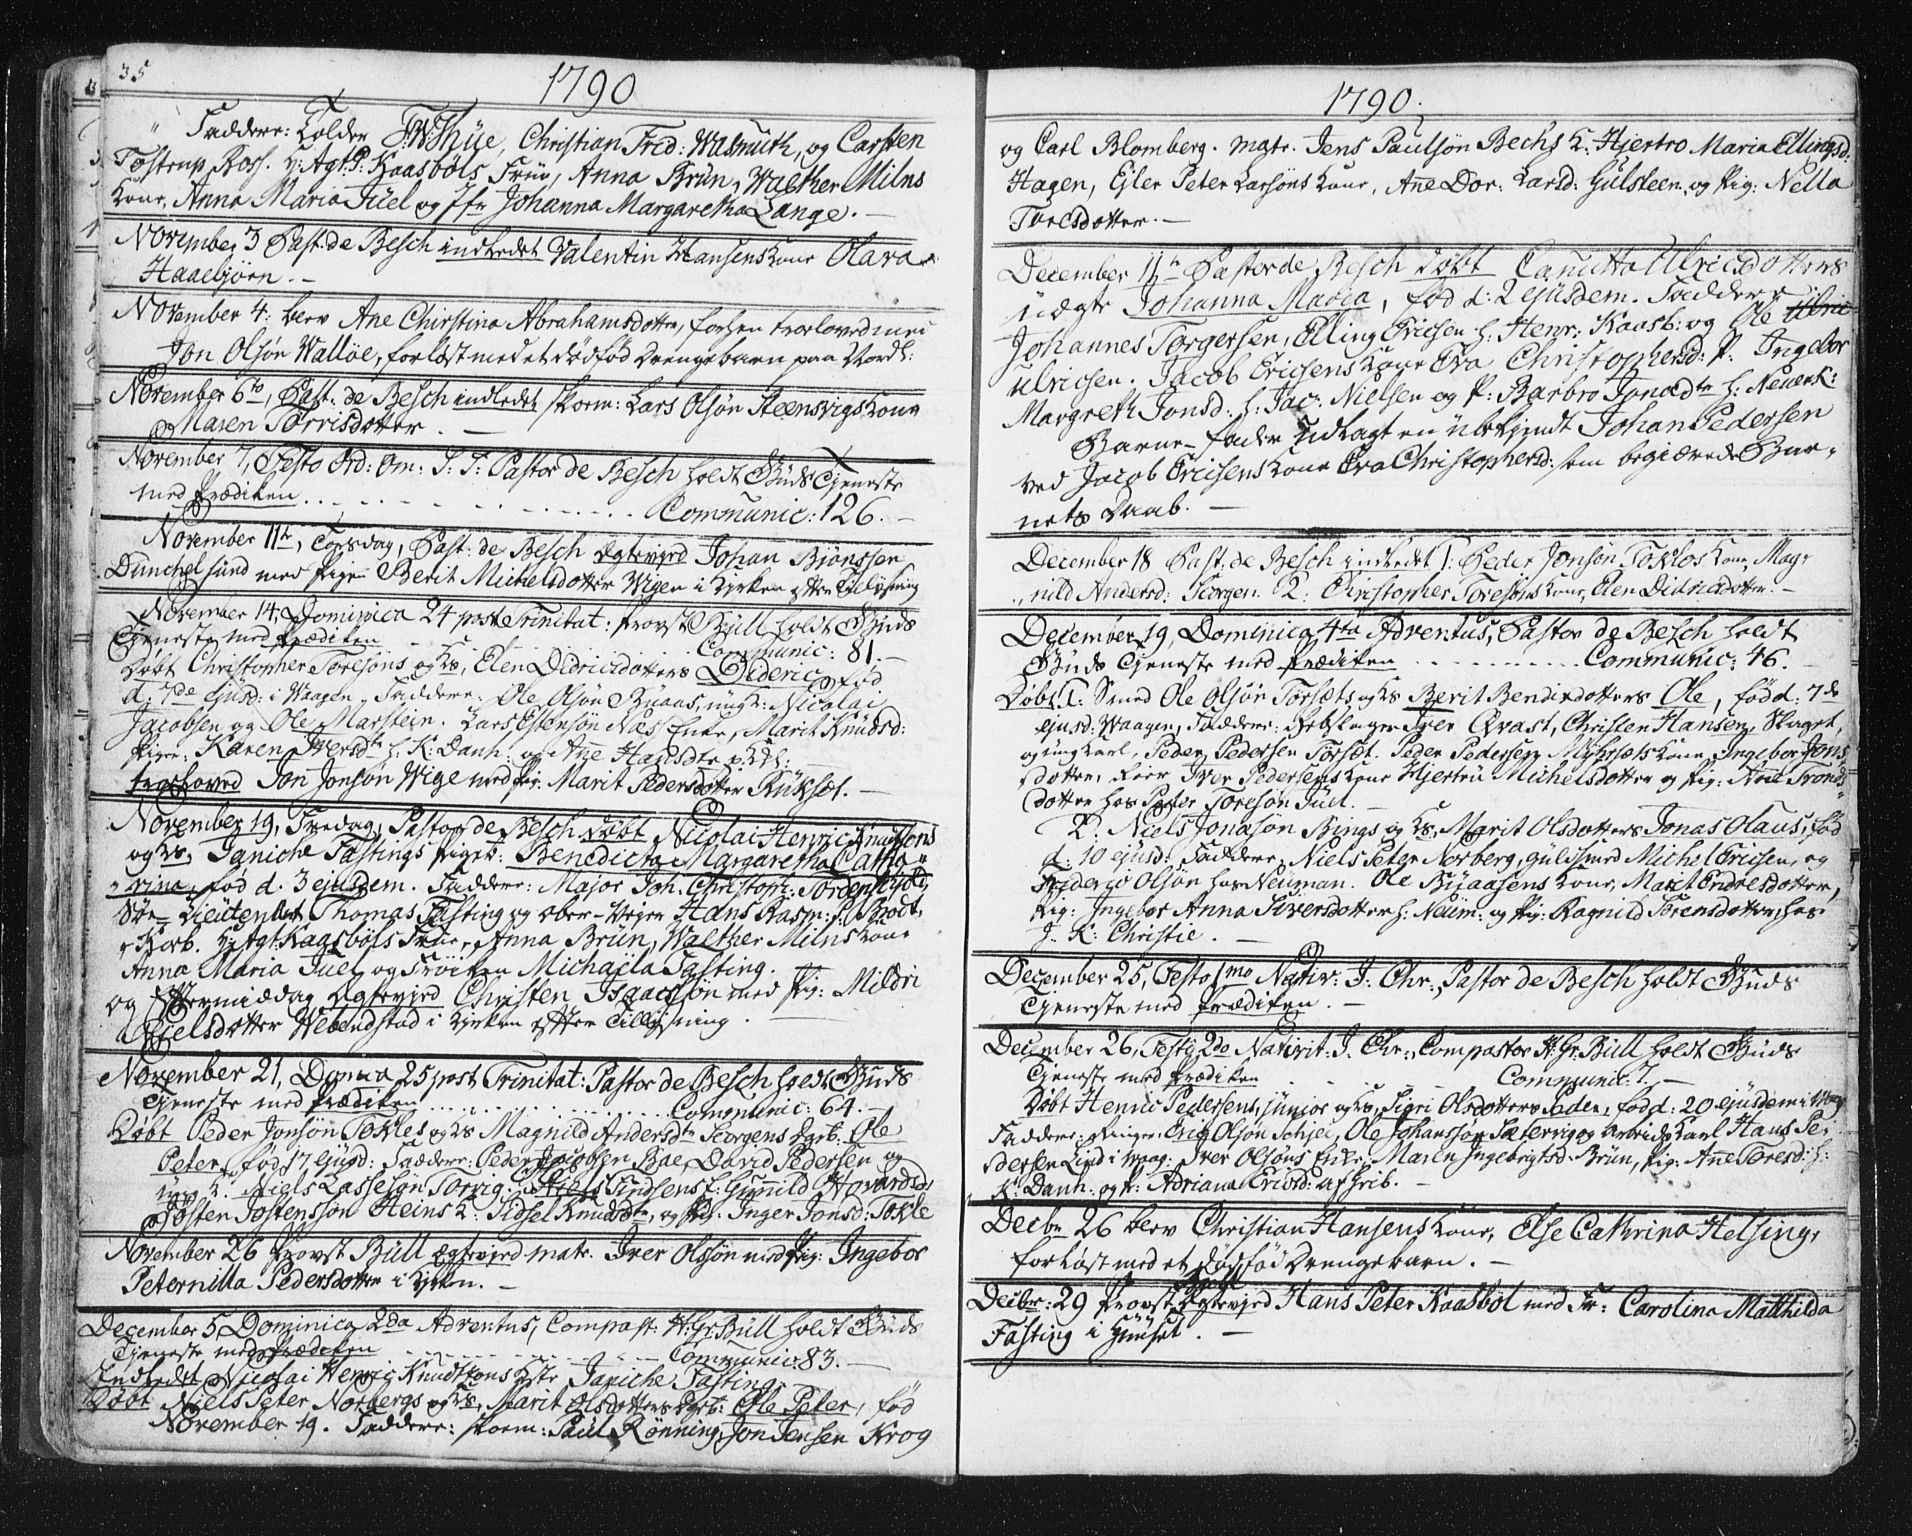 35
1790
Faddere: Tolder F. W. Thüe, Christian Frid: Wasmuth, og Carsten
Tostrup Ross. H: Agt: P: Kaasböls Früe, Anna Brün, Walther Milns
Kone, Anna Maria Jüel og Jfr Johanna Margaretha Lange. —
November 3 Past: de Besch indledet Valentin Hansens Kone Olava
Haaebjörn. —
November 4: blev Ane Chirstina Abrahamsdotter, forhen troloved med
Jon Olsøn Walløe, forløst med et dødfød Drengebarn paa Nordl:
November 6to, Past: de Besch indledet skoem: Lars Olsøn Steensvigs Kone
Maren Torrisdotter. —
November 7, Festo Ord: Om: S: S: Pastor de Besch holdt Guds Tjeneste
med Prædiken . . . . . . . Communic: 126. —
November 11te, Torsdag, Past: de Besch Egtevied Johan Bjönssen
Dunckelsund med Pigen Berit Michelsdotter Wigen i Kirken efter Tillysning
November 14, Dominica 24 post Trinitat: Provst Büll holdt Guds
Tjeneste med Prædiken . . . . . . Communic: 81. —
Døbt Christopher Toresøns og Hs, Elen Didricsdotters Dideric, fød
d. 7de ejusd: i Waagen, Faddere: Ole Olsøn Büaas, ungk: Nicolai
Jacobsen og Ole Marstein. Lars Estensøn Næs Enke, Marit Knudsd:
Piger: Karen Iversdtr h. K: Danh: og Ane Hansdtr p. Kl:
trolloved Jon Jonsøn Wige med Pig: Marit Pedersdotter Rükset. —
November 19, Fredag, Pastor de Besch døbt Nicolai Henric Knudtzons
og Hs, Janiche Fastings Pigeb: Benedicta Margaretha Catha-
rina, fød d. 3 ejusdem. Faddere: Major Joh. Christoph: Tordenskjold,
Söe-Lieutenant Thomas Fasting og ober-Vejer Hans Rasm: S. Brodt,
Kiøb. H: Agt: Kaasböls Früe, Anna Brün, Walther Milns Kone
Anna Maria Juel og Frøiken Michaila Fasting.
og Eftermiddag Egtevied Christen Isaacssøn med Pig: Mildri
Axelsdotter Webendstad i Kirken efter Tillysning.
November 21, Domca 25 post Trinitat: Pastor de Besch holdt Guds
Tjeneste med Prædiken . . . . . . Communic: 64. —
Døbt Peder Jonsøn Tokles og Hs Magnild Andersdtr Scorgens Dgb: Ole
Peter, fød 17 ejusd: Faddere: Peder Jacobsen Bae, David Pedersen og
ung K. Niels Lassesøn Torvig: Niels Findsens E: Gunnild Havordsd:
Josten Jostenssøn Heins K: Sidsel Knudsdtr, og Pig: Inger Jonsd: Tokle
November 26 Provst Büll Egtevied matr. Iver Olssøn med Pig: Ingebor
Peternilla Pedersdotter i Kirken. —
December 5, Dominica 2da Adventus, Compast: H: Gr. Büll holdt Guds
Tjeneste med Prædiken . . . . . Communic: 83. —
Indledet Nicolai Henric Knudtzons Kste Janiche Fasting
Døbt Niels Peter Norbergs og Hs, Marit Olsdotters Dgb: Ole Peter, fød
November 19. Faddere: skoem: Paul Rönning, Jon Jensen Krog
1790.
og Carl Blomberg. matr. Jens Paulsøn Bechs K: Hjertro Maria Ellingsd.
Hagen, Ejler Peter Larsöns Kone, Ane Dor: Larsd: Gulsteen og Pig: Nella
Toresdotter. —
December 11te Pastor de Besch døbt Canutta Ulricsdotters
uægte Johanna Maria, fød d: 2 ejusdem. Faddere:
Johannes Torgersen, Elling Ericsen h. Henr: Kaasb: og Ole Ulric
ulricsen. Jacob Ericsens Kone Eva Christophersd: P. Ingebor
Margreth Jonsd: h: Jac: Nielsen og P: Barbro Jonadtr h: Neuerk:
Barne-fader udlagt en übekjendt Johan Pedersen
ved Jacob Ericsens Kone Eva Christophersd: som begierede Bar-
nets Daab. —
December 18 Past: de Besch indledet 1: Peder Jonsøn Tokles Kone Mag-
nild Andersd: Scorgen. 2: Christopher Toresøns Kone, Elen Didricsdotter. —
December 19, Dominica 4ta Adventus, Pastor de Besch holdt
Guds Tjeneste med Prædiken . . . . . . Communic: 46. —
Døbt 1: Smed Ole Olsön Torsæts og Hs Berit Bendixdotters Ole, fød d: 7de
ejusd: Waagen, Faddere: Iver Qvast, Christen Hansen Slaget,
og ungkarl, Peder Pedersen Torset. Peder Pedersen Myhrsæts Kone, Ingebor Jons-
dotter, Iver Pedersens Kone Hjertrü Michelsdotter og Pig: Ane Tronds-
dotter hos Peter Toresøn Jüel. —
2. Niels Jonasøn Bings og Hs, Marit Olsdotters Jonas Olaus, fød
d: 10 ejusd: Faddere, Niels Peter Norberg, guldsmed Michel Ericsen, og
Frideric Olsøn hos Neuman. Ole Büaasens Kone, Marit Endresdotter,
Pig: Ingebor Anna Siversdotter h: Neüm: og Pig: Ragnild Torensdotter, hos
J. K: Christie. —
December 25, Festo 1mo Nativ: J: Chr:, Pastor de Besch holdt Guds
Tjeneste med Prædiken. —
December 26, Festo 2do Nativit: J. Chr:, Compastor H: Gr. Büll holdt Guds
Tjeneste med Prædiken . . . . Communic: 7. —
Døbt Henric Pedersens, junior og Hs, Sigri Olsdotters Peder, fød d: 20 ejusdem i Waag
Faddere: Ringer: Eric Olsøn Solsjei, Ole Johanssøn Sætervig og Arbeidskarl Hans Pe-
dersen Lind i Waag: Iver Olsøns Enke: Maren Ingebrigtsd: Brün, Pig: Ane Toresd: h:
K: Danh: og P: Adriana Ericsd: af Grib. —
Decbr 26 blev Christian Hansens Kone, Else Cathrina Helsing,
forløst med et dødfød Drengebarn. —
Decbr: 29 Provst Bügge Egteviede Hans Peter Kaasböl med Fr: Carolina Matthilda
Fasting i Huuset. —